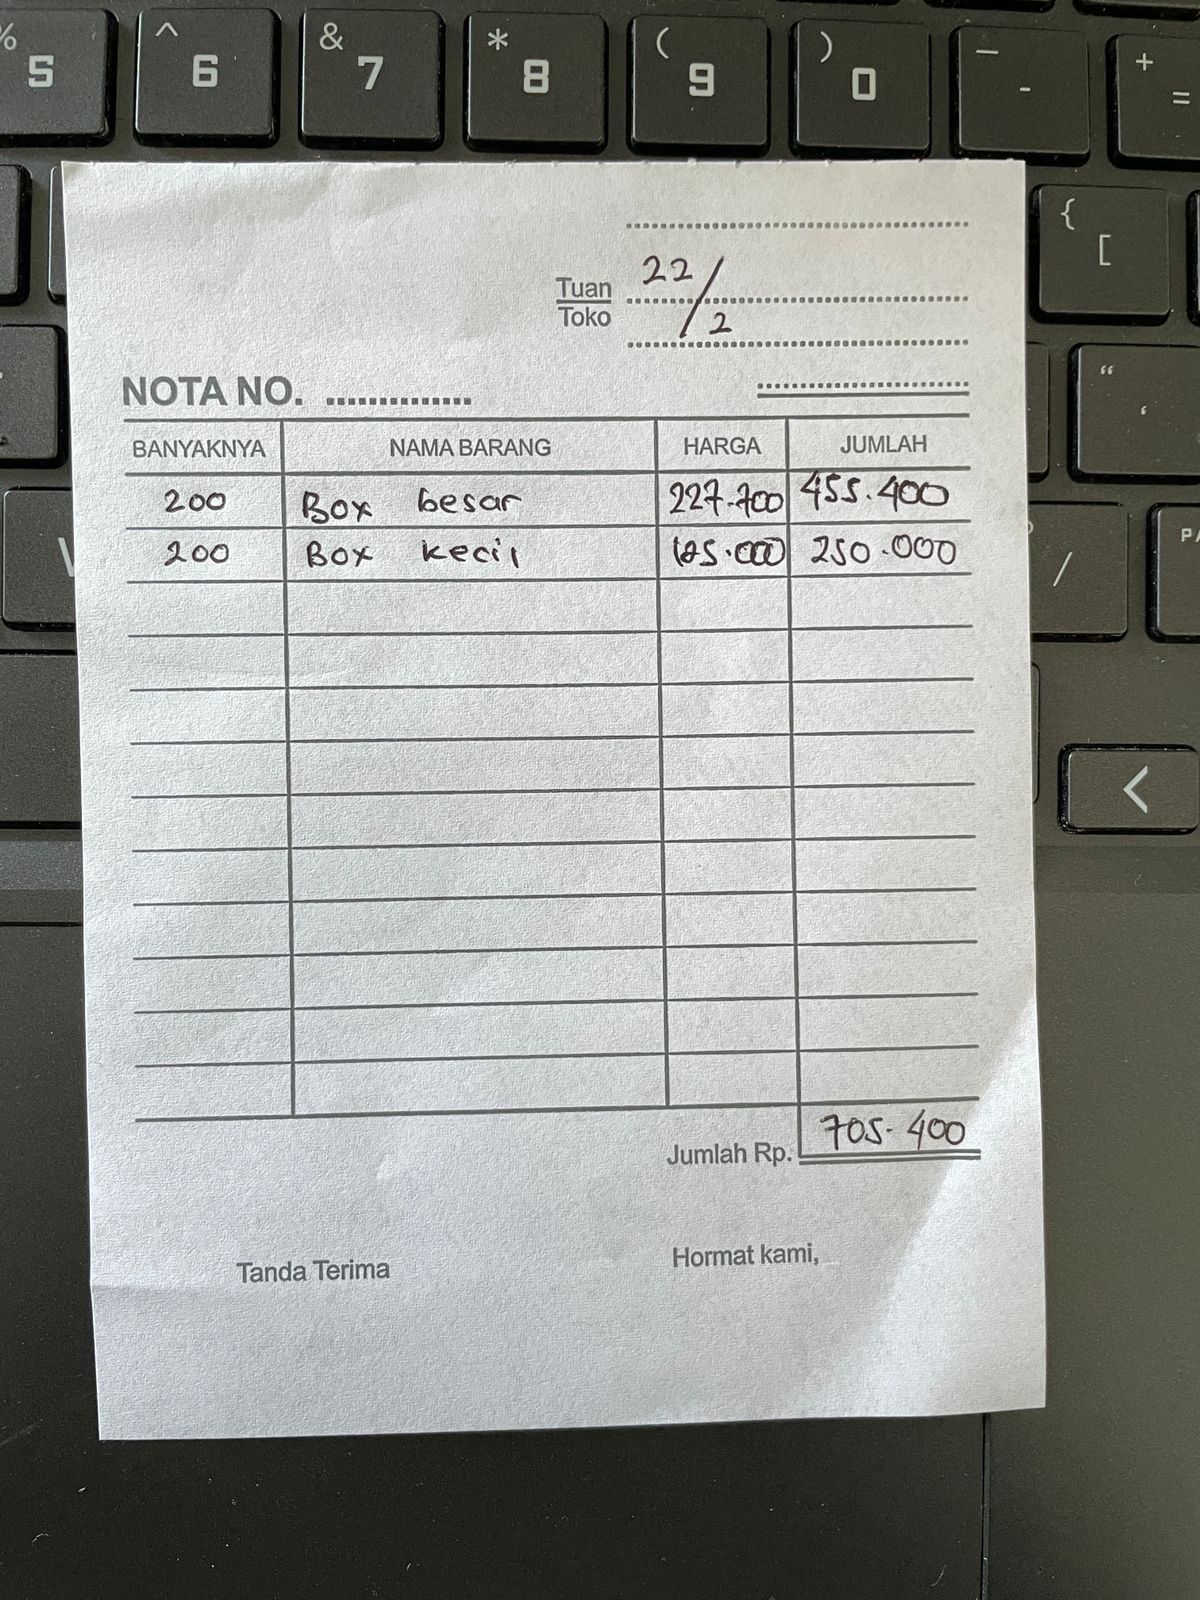 % ^ & * ( ) _ +
5 6 7 8 9 0 - =
{
[
22/2
Tuan
Toko
NOTA NO. ..............
BANYAKNYA NAMA BARANG HARGA JUMLAH
200 Box besar 227.700 455.400
200 Box kecil 125.000 250.000
Jumlah Rp. 705.400
Tanda Terima Hormat kami,
“
‘
/
<